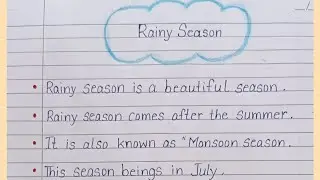 Rainy Season
• Rainy season is a beautiful season.
• Rainy season comes after the summer.
• It is also known as "Monsoon season.
• This season beings in July.